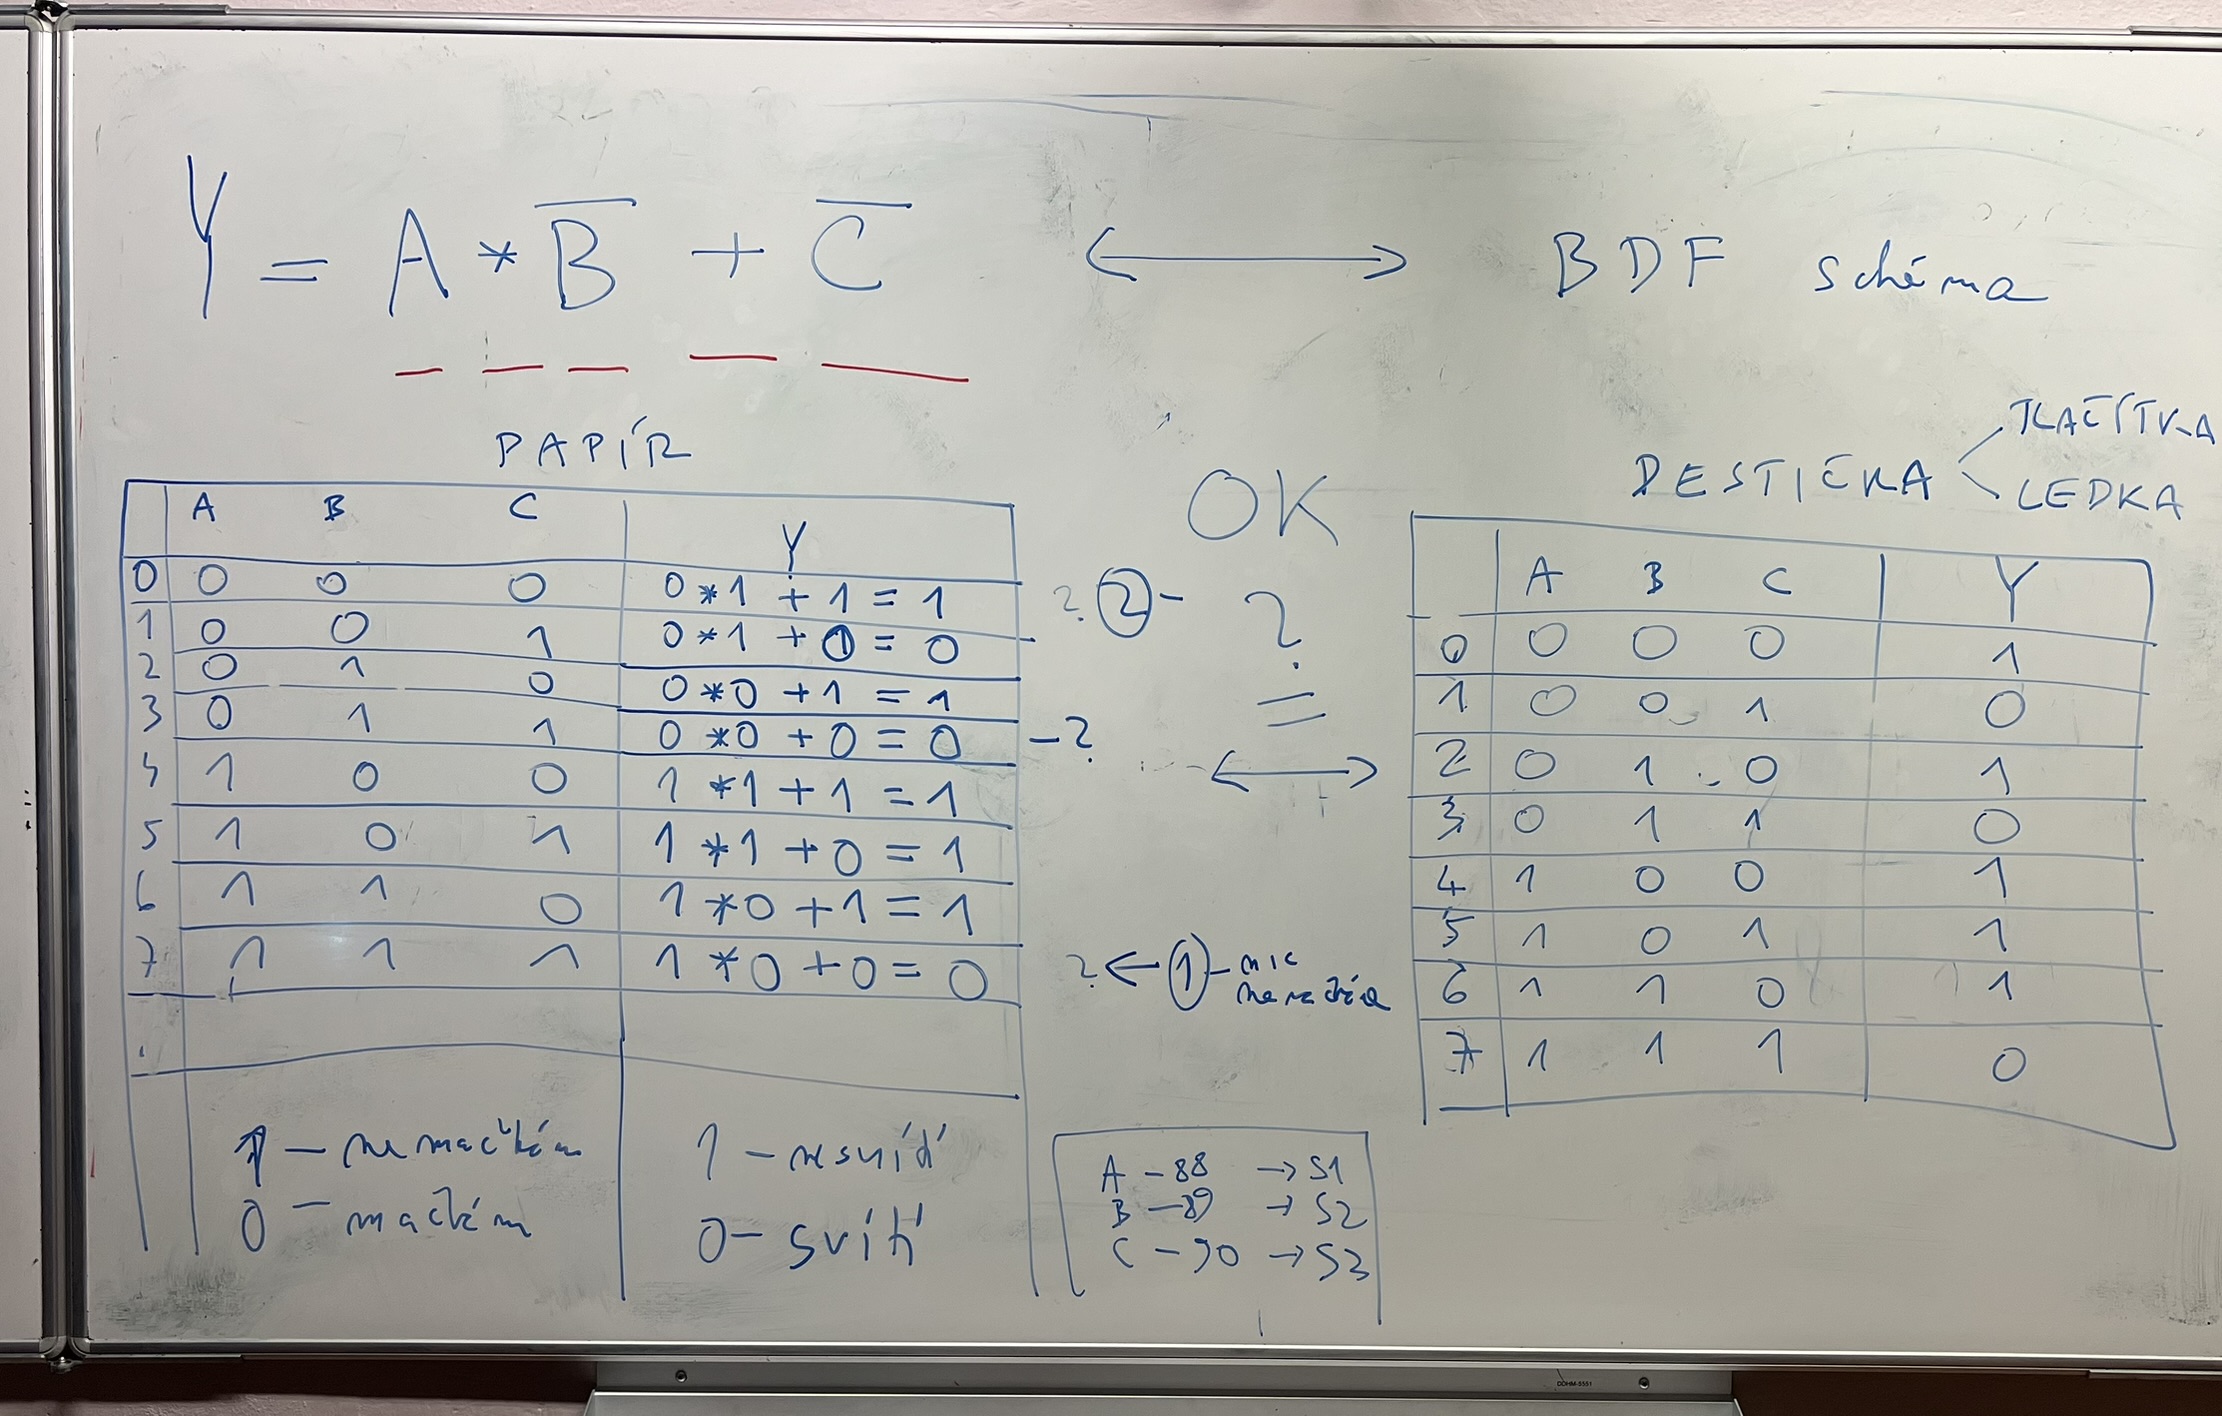 Y = A * B̅ + C̅ ⟷ BDF schéma
PAPÍR
A B C Y
0 0 0 0 0*1 + 1 = 1
1 0 0 1 0*1 + 0 = 0
2 0 1 0 0*0 + 1 = 1
3 0 1 1 0*0 + 0 = 0
4 1 0 0 1*1 + 1 = 1
5 1 0 1 1*1 + 0 = 1
6 1 1 0 1*0 + 1 = 1
7 1 1 1 1*0 + 0 = 0
1 – nemačkám
0 – mačkám
1 – nesvítí
0 – svítí
? ② –
– ?
? ← ① – nic
nemačkám
OK
?
=
⟷
A – 88 → S1
B – 89 → S2
C – 90 → S3
DESTIČKA
TLAČÍTKA
LEDKA
A B C Y
0 0 0 0 1
1 0 0 1 0
2 0 1 0 1
3 0 1 1 0
4 1 0 0 1
5 1 0 1 1
6 1 1 0 1
7 1 1 1 0
DDHM-5551